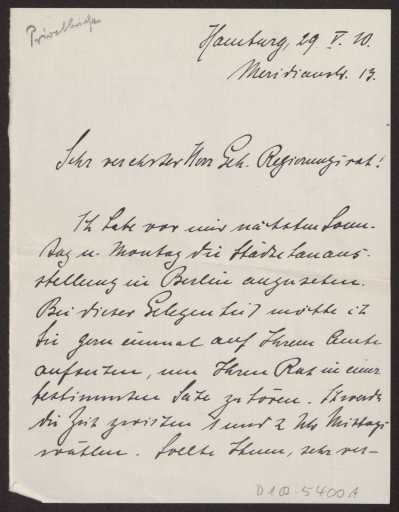 Privatbriefe
Hamburg, 29 V. 10.
Meridianstr. 13.
Sehr verehrter Herr Geh. Regierungsrat!
Ich habe vor mir nächsten Sonn-
tag u. Montag die Städtebauaus-
stellung in Berlin anzusehen.
Bei dieser Gelegenheit möchte ich
Sie gern einmal auf Ihrem Amte
aufsuchen, um Ihren Rat in einer
bestimmten Sache zu hören. Ich würde
die Zeit zwischen 1 und 2 Uhr Mittags
wählen. Sollte Ihnen, sehr ver-
D1Q-5400A